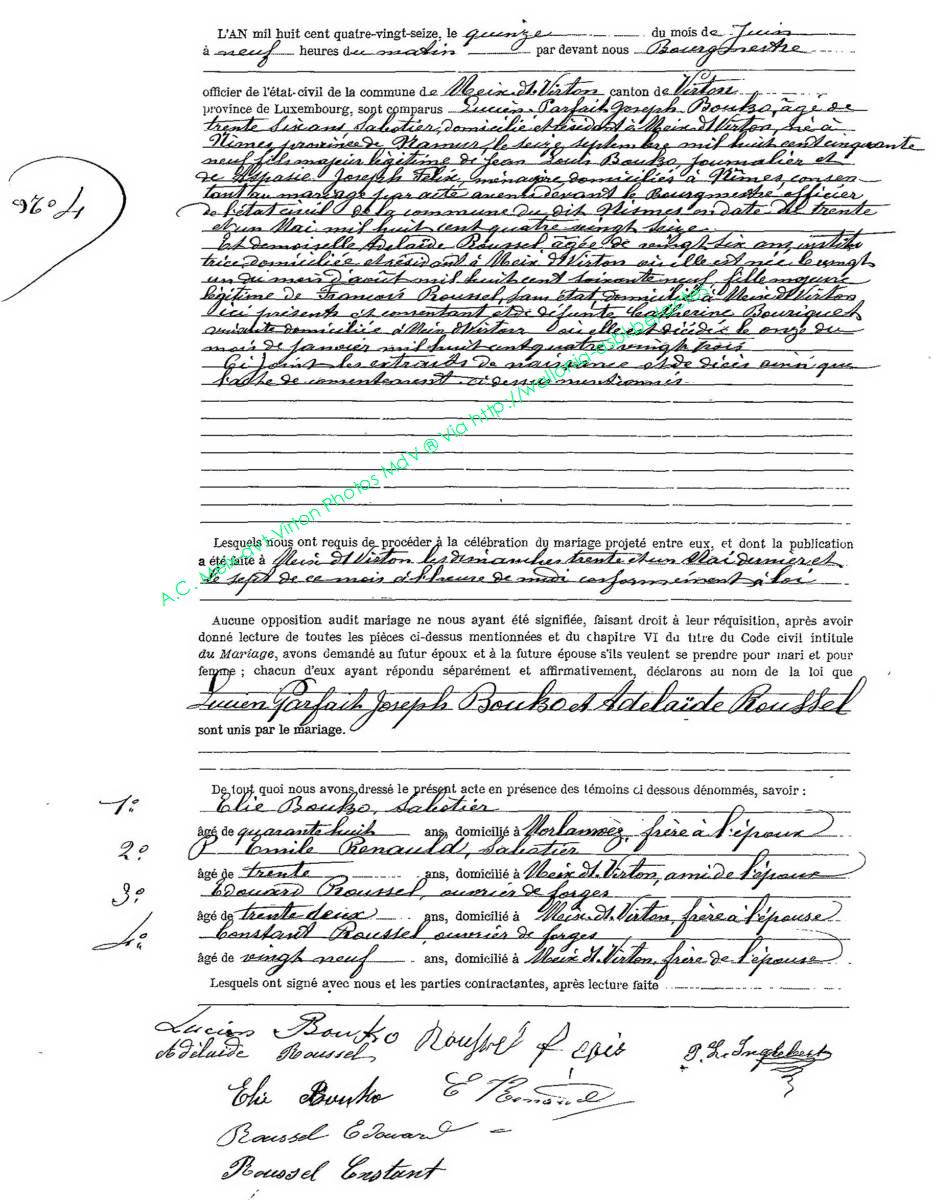 L'AN mil huit cent quatre-vingt-seize, le quinze du mois de Juin
à neuf heures du matin par devant nous Bourgmestre
officier de l'état-civil de la commune de Meix dt Virton canton de Virton
province de Luxembourg, sont comparus Lucien Parfait Joseph Bouko, âgé de
trente six ans Sabotier, domicilié et résidant à Meix dt Virton, né à
Nimes, province de Namur, le seize septembre mil huit cent cinquante
neuf, fils majeur légitime de Jean Louis Bouko, journalier et
de Aspasie Joseph Felix, ménagère domiciliés à Nîmes, consen
tant au mariage par acte avenu devant le Bourgmestre officier
de l'état civil de la commune du dit Nismes en date du trente
et un Mai mil huit cent quatre vingt seize
N° 26
Et demoiselle Adelaïde Roussel, âgée de vingt six ans, institu
trice, domiciliée et résidant à Meix dt Virton où elle est née le vingt
un du mois d'août mil huit cent soixante neuf, fille majeure
légitime de François Roussel, sans état domicilié à Meix dt Virton
ici présent et consentant et de défunte Catherine Bourguet
domiciliée à Meix dt Virton où elle est décédée le onze du
mois de janvier mil huit cent quatre vingt trois
Ci joint les extraits de naissance et de décès ainsi que
l'acte de consentement ci dessus mentionnés
A.C. Meix-dvt-Virton Photos MdV ® Via http://wallonia-asbl.be/actes
Lesquels nous ont requis de procéder à la célébration du mariage projeté entre eux, et dont la publication
a été faite à Meix dt Virton les dimanches trente et un Mai dernier et
le sept de ce mois à l'heure de midi conformément à loi
Aucune opposition audit mariage ne nous ayant été signifiée, faisant droit à leur réquisition, après avoir
donné lecture de toutes les pièces ci-dessus mentionnées et du chapitre VI du titre du Code civil intitule
du Mariage, avons demandé au futur époux et à la future épouse s'ils veulent se prendre pour mari et pour
femme ; chacun d'eux ayant répondu séparément et affirmativement, déclarons au nom de la loi que
Lucien Parfait Joseph Bouko et Adelaïde Roussel
sont unis par le mariage.
De tout quoi nous avons dressé le présent acte en présence des témoins ci dessous dénommés, savoir :
1° Elie Bouko, Sabotier
âgé de quarante huit ans, domicilié à Morlanwez, frère à l'époux
2° P Emile Renauld, Sabotier
âgé de trente ans, domicilié à Meix dt Virton, ami de l'époux
3° Edouard Roussel, ouvrier de forges
âgé de trente deux ans, domicilié à Meix dt Virton, frère à l'épouse
4° Constant Roussel, ouvrier de forges
âgé de vingt neuf ans, domicilié à Meix dt Virton, frère de l'épouse
Lesquels ont signé avec nous et les parties contractantes, après lecture faite
Lucien Bouko Roussel
Adélaide Roussel
Elie Bouko E Renauld
Roussel Edouard
Roussel Constant